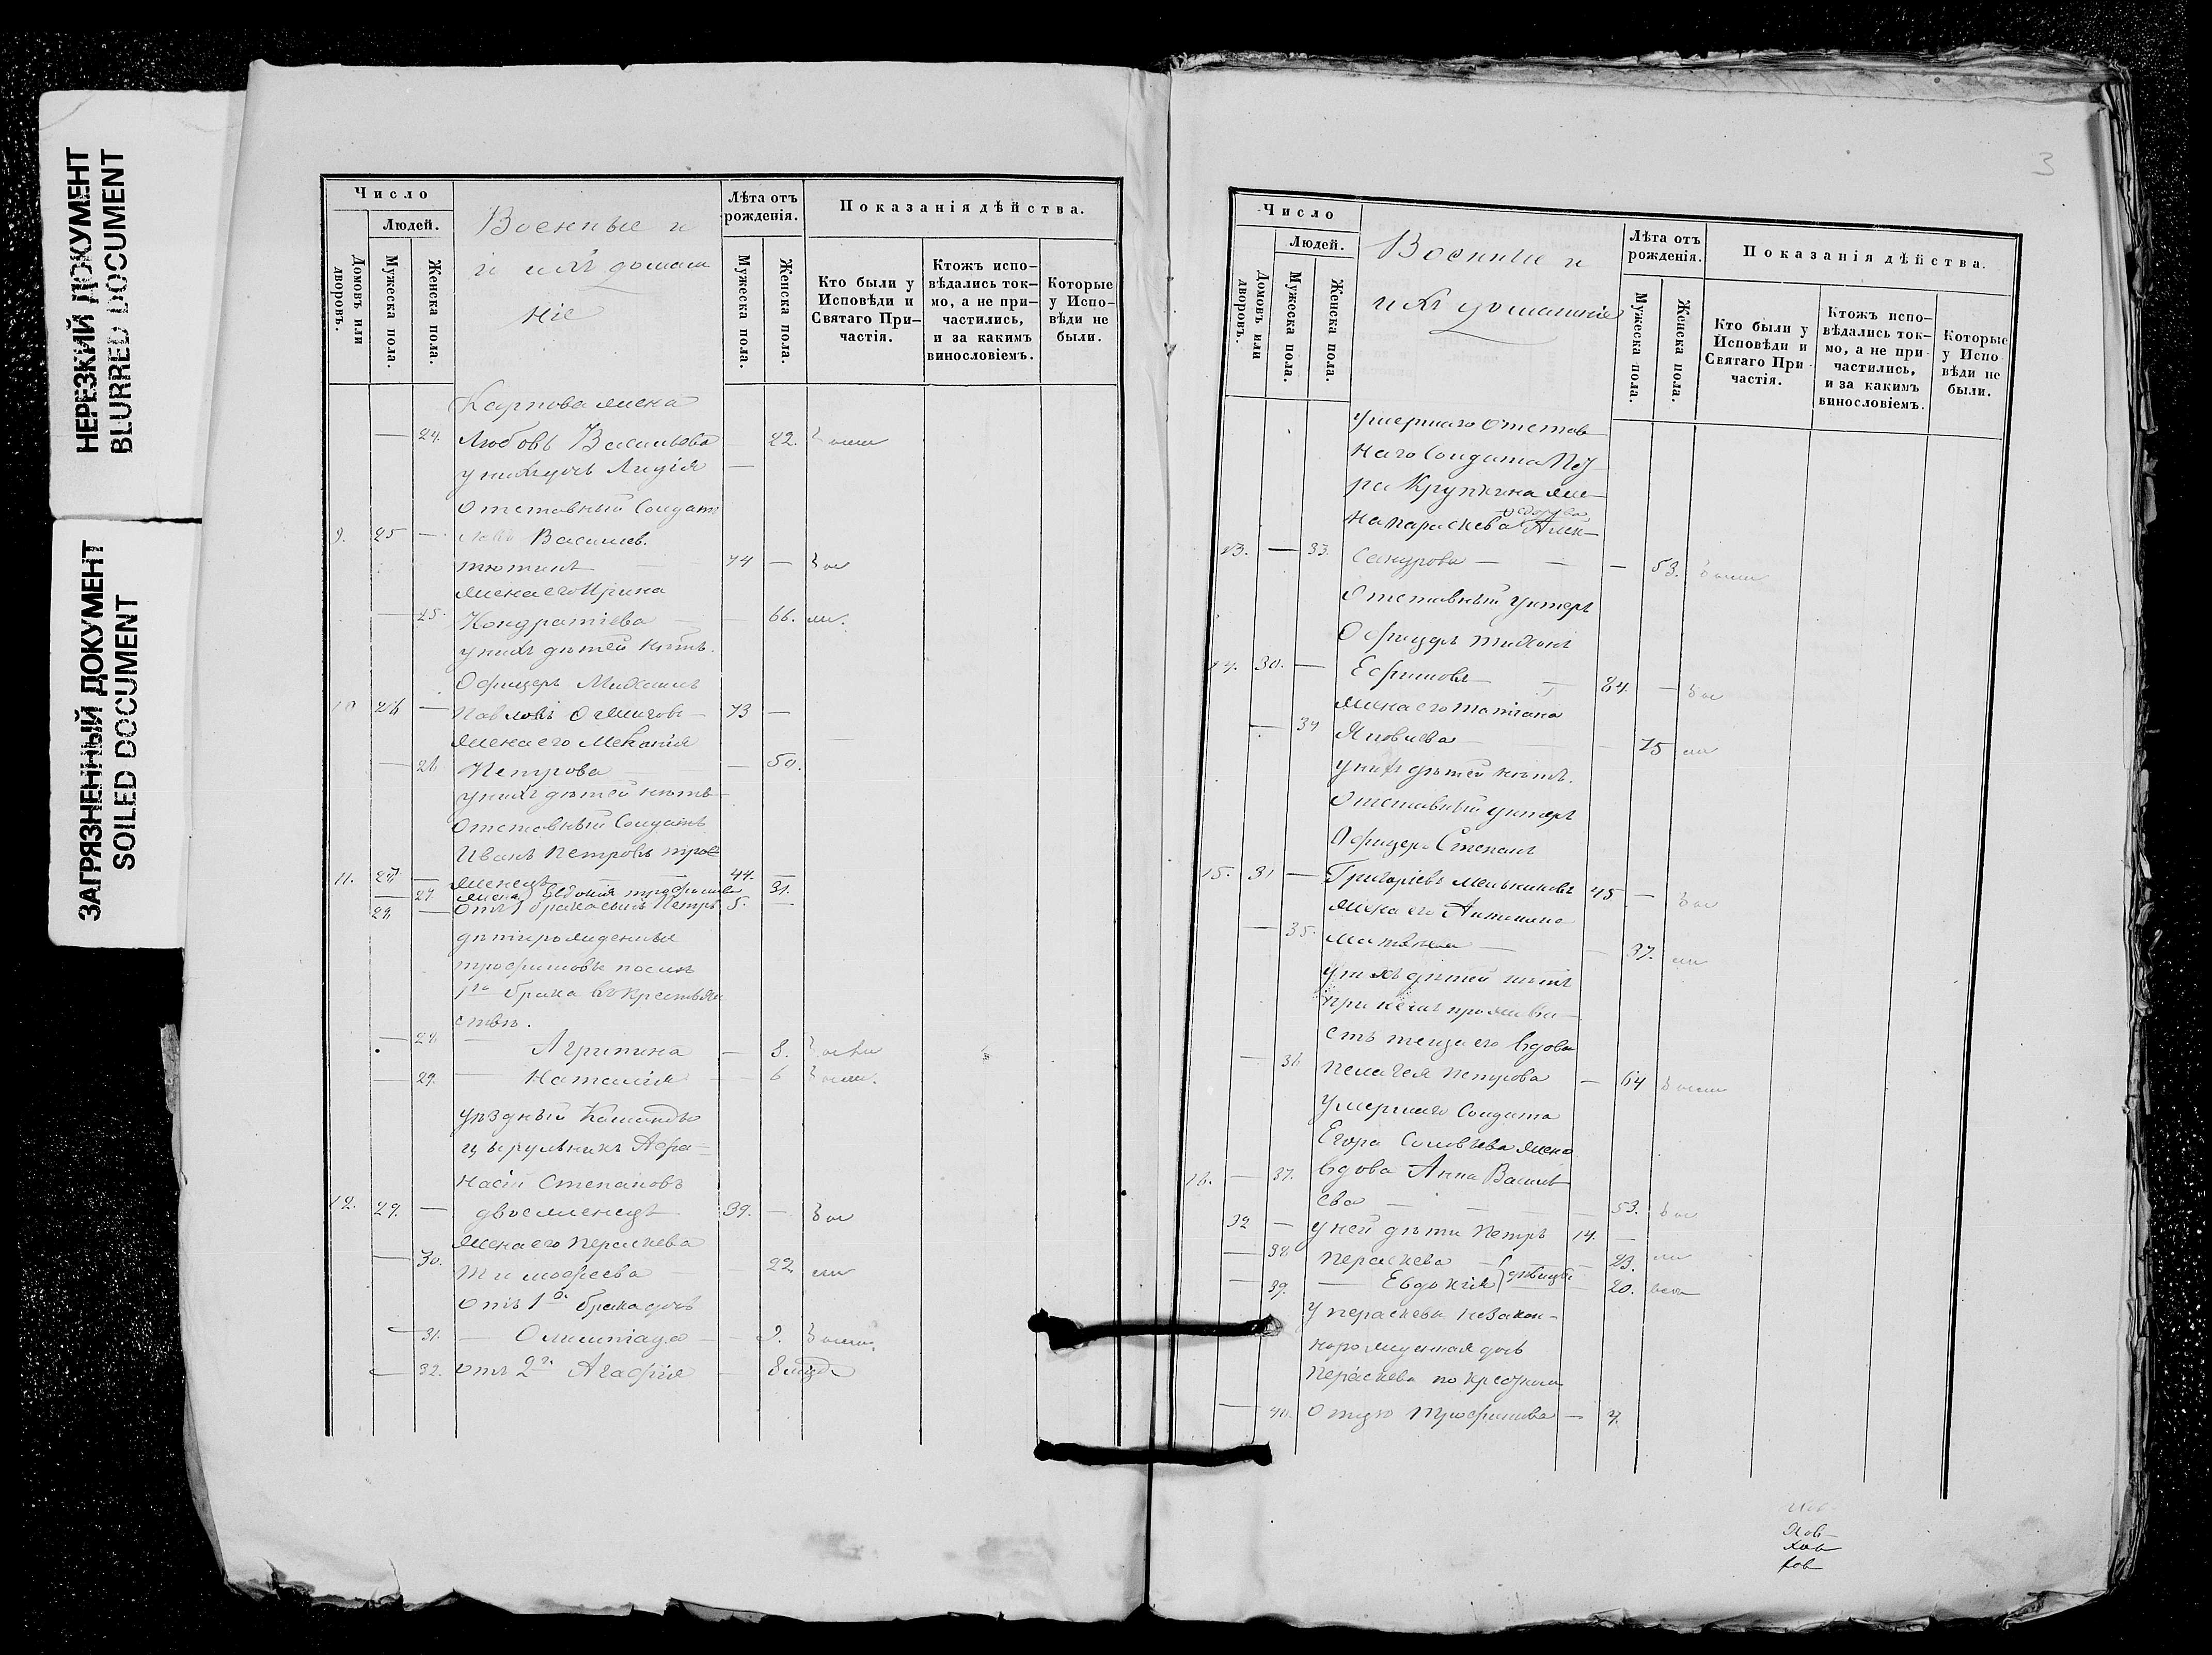 НЕРЕЗКИЙ ДОКУМЕНТ
BLURRED DOCUMENT
ЗАГРЯЗНЕННЫЙ ДОКУМЕНТ
SOILED DOCUMENT
Число
Людей.
Домовъ или дворовъ.
Мужеска пола.
Женска пола.
Военные и
и ихъ домаш
ніе
Лѣта отъ рожденія.
Мужеска пола.
Женска пола.
Показанія дѣйства.
Кто были у Исповѣди и Святаго При-частія.
Ктожъ испо-вѣдались ток-мо, а не при-частились, и за какимъ винословіемъ.
Которые у Испо-вѣди не были.
Карпова жена
24. Любовь Васильева 22.
у нихъ дочь Лидія —
Отставный Солдатъ
9. 25 — Васильев.
74 —
жена его Ирина
25. Кондратіева — 66.
у нихъ дѣтей нѣтъ.
Офицеръ Михаилъ
10 26 — Павловъ 73 —
жена его
26 Петрова — 50.
у нихъ дѣтей нѣтъ
Отставный Солдатъ
Иванъ Петровъ трое
11. 27 — женецъ 44. —
— 27. жена Евдокія Трофимова 31.
28 — отъ 1 брака сынъ Петръ 5. —
дѣти рожденные
Трофимовы после
1го брака въ крестьян
ствѣ.
— 28 — Агрипина — 8.
— 29. — Наталія — 6
уѣздный Команды
цырульникъ Афа=
насій Степановъ
12. 29. — двоеженецъ 39. —
жена его Пераскева
— 30. Тимофеева — 22
отъ 1о брака дочь
— 31. — Олимпіада — 9.
— 32. отъ 2го Агафія —
3
Число
Людей.
Домовъ или дворовъ.
Мужеска пола.
Женска пола.
Военные и
ихъ домашніе
Лѣта отъ рожденія.
Мужеска пола.
Женска пола.
Показанія дѣйства.
Кто были у Исповѣди и Святаго При частія.
Ктожъ испо-вѣдались ток-мо, а не при-частились, и за какимъ винословіемъ.
Которые у Испо-вѣди не были.
умершаго отстав
наго Солдата Пет
ра Крупкина же-
на Параскева Алек-
13. — 33. сандрова — — 53.
Отставный унтеръ
Офицеръ Тихонъ
14. 30. — Ефимовъ — 84. —
жена его Татіана
— 34 Яковлева — 75
у нихъ дѣтей нѣтъ.
Отставный унтеръ
Офицеръ Степанъ
15. 31 — Григоріевъ Мельниковъ 45 —
жена его Антонина
— 35. — 37.
у нихъ дѣтей нѣтъ
при немъ прожива-
етъ теща его вдова
— 36 Пелагея Петрова — 64
умершаго Солдата
Егора Соловьева жена
16. — 37. вдова Анна Василь
ева — 53.
32 — у ней дѣти Петръ 14. —
— 38. Пераскева — 23.
— 39. — Евдокія дѣвицы 20.
у Пераскевы незакон-
норожденная дочь
Пераскева по крестном
— 40. отцу Трофимова — 4.